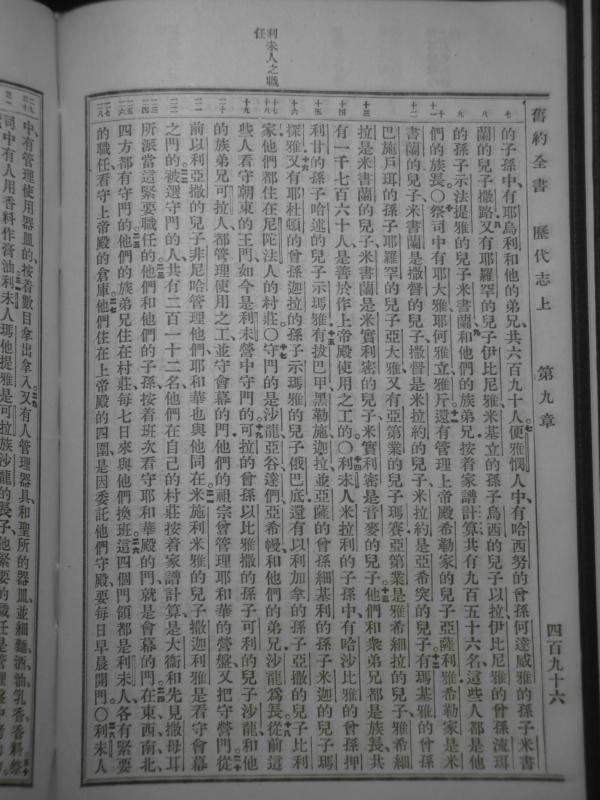 舊約全書 歷代志上 第九章 四百九十六
的子孫中、有耶烏利和他的弟兄共六百九十人便雅憫人中、有哈西努的曾孫何達威雅的孫子米書
蘭的兒子撒路又有耶羅罕的兒子伊比尼雅米基立的孫子烏西的兒子以拉伊比尼雅的曾孫流珥
的孫子示法提雅的兒子米書蘭和他們的族弟兄按着家譜計算共有九百五十六名這些人都是他
們的族長〇祭司中有耶大雅耶何雅立雅斤還有管理上帝殿希勒家的兒子亞薩利雅希勒家是米
書蘭的兒子米書蘭是撒督的兒子撒督是米拉約的兒子米拉約是亞希突的兒子有瑪基雅的曾孫
巴施戶珥的孫子耶羅罕的兒子亞大雅又有亞第業的兒子瑪賽亞第業是雅希細拉的兒子雅希細
拉是米書蘭的兒子米書蘭是米實利密的兒子米實利密是音麥的兒子他們和衆弟兄都是族長共
有一千七百六十人是善於作上帝殿使用之工的〇利未人米拉利的子孫中有哈沙比雅的曾孫押
利甘的孫子哈述的兒子示瑪雅有拔巴甲黑勒施迦拉並亞薩的曾孫細基利的孫子米迦的兒子瑪
探雅又有耶杜頓的曾孫迦拉的孫子示瑪雅的兒子俄巴底還有以利加拿的孫子亞撒的兒子比利
家他們都住在尼陀法人的村莊〇守門的是沙龍亞谷達們亞希幔和他們的弟兄沙龍爲長從前這
些人看守朝東的王門如今是利未營中守門的可拉的曾孫以比雅撒的孫子可利的兒子沙龍和他
的族弟兄可拉人都管理使用之工並守會幕的門他們的祖宗曾管理耶和華的營盤又把守營門從
前以利亞撒的兒子非尼哈管理他們耶和華也與他同在米施利米雅的兒子撒迦利雅是看守會幕
之門的被選守門的人共有二百一十二名他們在自己的村莊按着家譜計算是大衞和先見撒母耳
所派當這緊要職任的他們和他們的子孫按着班次看守耶和華殿的門就是會幕的門在東西南北、
四方都有守門的他們的族弟兄住在村莊每七日來與他們換班這四個門領都是利未人各有緊要
的職任看守上帝殿的倉庫他們住在上帝殿的四圍是因委託他們守殿要每日早晨開門〇利未人
中、有管理使用器皿的、按着數目拿出拿入又有人管理器具和聖所的器皿並細麵酒油乳香香料祭
司中有人用香料作膏油利未人瑪他提雅是可拉族沙龍的長子他緊要的職任是管理
利未人之職任